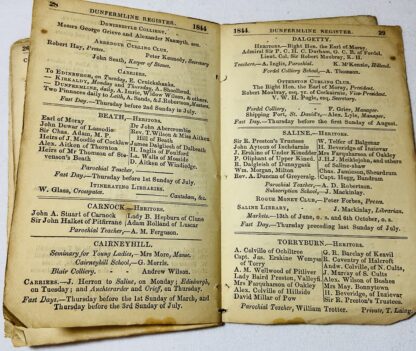 28 DUNFERMLINE REGISTER. 1844
DEWINSDYLE COLLIERY,
Messrs George Grieve and Alexander Nasmyth, agts.
ABERDOUR CURLING CLUB.
Robert Hay, Preses. Peter Kennedy, Secretary
John Seath, Keeper of Stones.
CARRIERS.
To EDINBURGH, on Tuesday, E. Cruickshanks.
— KIRKCALDY, Monday and Thursday, A. Shoolbred.
— DUNFERMLINE, daily, A. Inglis, Willow Wilson, & others.
Two Pinnaces daily to Leith, A. Sands, & J. Robertson, Masters.
Fast Day.—Thursday before 2nd Sunday of July.
BEATH,—HERITORS.
Earl of Moray
John Dewar of Lassodie
Sir Chas. Adam, M. P.
Alex. Moodie of Cocklaw
Heirs of Mr Thomson of Stevenson's Beath
Dr John Abercrombie
Rev. T. Wilson & Miss Aitken
Hill of Beath
James Dalgleish of Dalbeath
H. Inglis of Pacified
La. Walls of Mosside
D. Aitken of Windiedge.
Parochial Teacher,
Fast Day.—Thursday before 1st Sunday of July.
ITINERATING LIBRARIES.
W. Glass, Crossgates. Cantsdam, &c.
CARNOCK,—HERITORS.
John A. Stuart of Carnock
Sir John Halket of Pitfirrane
Lady B. Hepburn of Clune
Adam Rolland of Luscar
Parochial Teacher,—A. M. Ferguson.
CAIRNEYHILL.
Seminary for Young Ladies,—Mrs More, Manse.
Cairneyhill School,—G. Morris.
Blair Colliery. - Andrew Wilson.
CARRIERS.—J. Herron to Saline, on Monday; Edinburgh, on Tuesday; and Auchterarder and Crieff, on Thursday.
Fast Days.—Thursday before the 1st Sunday of March, and Thursday before the 3rd Sunday of July.
1844. DUNFERMLINE REGISTER. 29
DALGETTY.
HERITORS.—Right Hon. the Earl of Moray
Admiral Sir P. C. H. Durham, G. C. B. of Fordel.
Lieut. Col. Sir Robert Moubray, K. H.
Teachers,—A. Inglis, Parochial. K. M'Kenzie, Hillend.
Fordel Colliery School,—A. Thomson.
CURLING CLUB.
The Right Hon. the Earl of Moray, President.
Robert Moubray, esq. yr. of Cockcairnie, Vice-President.
V. W. H. Pogle, esq., Secretary.
Fordel Colliery, - P. Geles, Manager.
Shipping Port, St. David's,—Alex. Lyle, Manager.
Fast Day.—Thursday before the first Sunday of August.
SALINE,—HERITORS.
Sir R. Preston's Trustees
John Aytoun of Inchdarnie
J. Erskine of Under Kinedder
P. Oliphant of Upper Kined.
R. Dalgleish of Dunnygask
Wm. Morgan, Milton
Rev. A. Duncan of Greyscraig
W. Telfer of Balgonar
H. Beveridge of Inzievar
Hon. Fumasters of Balgownie
J. H. J. Meiklejohn, and others
of Saline-shaw
Chas. Jamieson, Broardrum
Capt. Hogg, Bandrum
Parochial Teacher,—A. D. Robertson.
Subscription School, J. Mackinlay.
ROGUE MONEY CLUB,—Peter Forbes, Preses.
SALINE LIBRARY, - J. Mackinlay, Librarian.
Markets.—13th of June, o. s. and 4th October, o. s.
Fast Day.—Thursday preceding last Sunday of July.
TORRYBURN.—HERITORS.
A. Colville of Ochiltree
Capt. Jas. Erskine Wemyss of Torry
A. M. Wellwood of Pitliver
Lady Baird Preston, Valleyf.
Mrs Farquharson of Oakley
Alex. Colville of Hillside
David Millar of Pow
G. R. Barclay of Keavil
R. Coventry of Halcroft
Andw. Colville, of N. Cults,
J. Murray of S. Cults
Alex. Wilson of Bushes
Mrs May, Bonnytown
H. Beveridge, of Inzievar
Sir R. Preston's Trustees.
Parochial Teacher, William Trotter. Private, T. Laing.